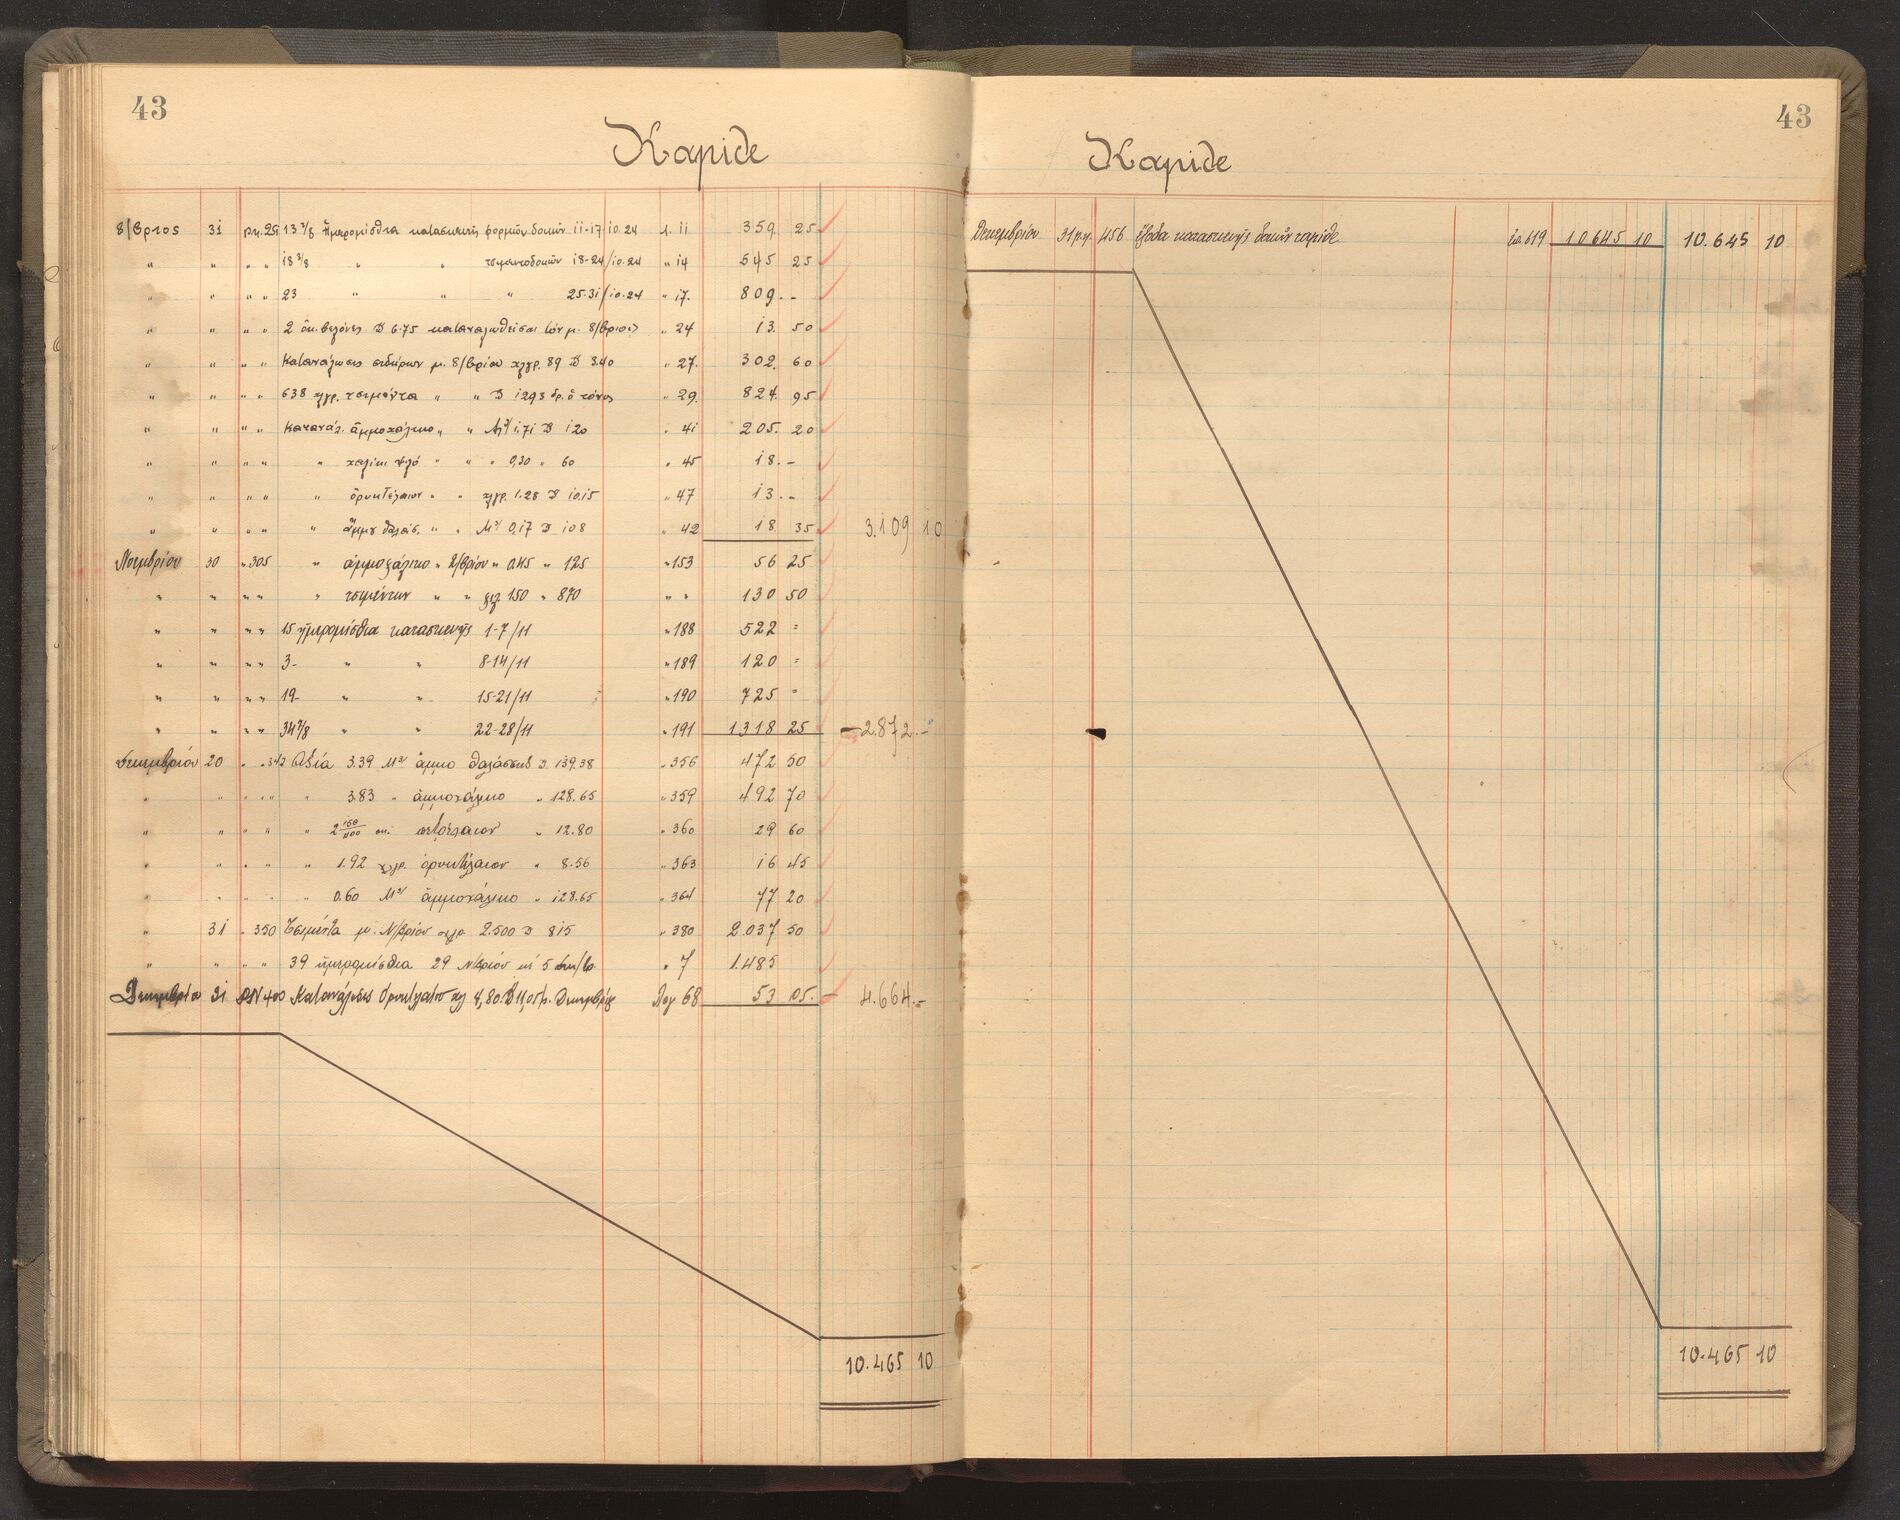 43
Rapide
8/βριος 31 13 7/8 Ἡμερομίσθια κατασκευῆς φορμῶν δοκῶν 11-17/10.24 λ. 11 359 25
" " " " 18 3/8 " " τσιμεντοδοκῶν 18-24/10.24 " 14 545 25
" " " " 23 " " " 25-31/10.24 " 17. 809. -
" " " " 2 ὀκ. βελόνες 6.75 καταναλωθεῖσαι τὸν μ. 8/βριον " 24 13. 50
" " " " Κατανάλωσις σιδήρων μ. 8/βρίου χλγρ. 89 3.40 " 27. 302. 60
" " " " 638 χλγρ. τσιμέντα " " 1293 δρ. ὁ τόνος " 29. 824. 95
" " " " Καταναλ. ἀμμοχάλικο " " Μ3/ 1.71 120 " 41 205. 20
" " " " " χαλίκι ψιλό " " " 0,30 " 60 " 45 18. -
" " " " " ὀρυκτέλαιον " " χλγρ. 1.28 10.15 " 47 13. -
" " " " " ἄμμου θαλάσ. " " Μ3/ 0,17 108 " 42 18 35 3.109 10
Νοεμβρίου 30 " 305 " ἀμμοχάλικο " 9/βρίου " 0.45 " 125 " 153 56 25
" " " " " τσιμέντων " " χλγ. 150 " 870 " " 130 50
" " " " 15 ἡμερομίσθια κατασκευῆς 1-7/11 " 188 522 =
" " " " 3- " " 8-14/11 " 189 120 =
" " " " 19- " " 15-21/11 " 190 725 "
" " " " 34 7/8 " " 22-28/11 " 191 1318 25 2.872. -
Δεκεμβρίου 20 " " 342 Ἀξία 3.39 Μ3/ ἄμμο θαλάσσης 139.38 " 356 472 50
" " " " " 3.83 " ἀμμοχάλικο " 128.65 " 359 492 70
" " " " " 2 " 12.80 " 360 29 60
" " " " " 1.92 χλγρ. ὀρυκτέλαιον " 8.56 " 363 16 45
" " " " " 0.60 Μ3/ ἀμμοχάλικο " 128.65 " 364 77 20
" 31 " 350 Τσιμέντα μ. Ν/βρίου χλγρ 2.500 815 " 380 2.037 50
" " " " 39 ἡμερομίσθια 29 Νβρίου 5 " 7 1.485
Δεκεμβρίου 31 400 Κατανάλωσις ὀρυκτελαίου χλ 4,80. 11,05 μ. Δεκεμβρίου Λογ 68 53 05. - 4.664. -
10.465 10
43
Rapide
Δεκεμβρίου 31 456 ἔξοδα κατασκευῆς δοκῶν rapide 619 10645 10 10.645 10
10.465 10